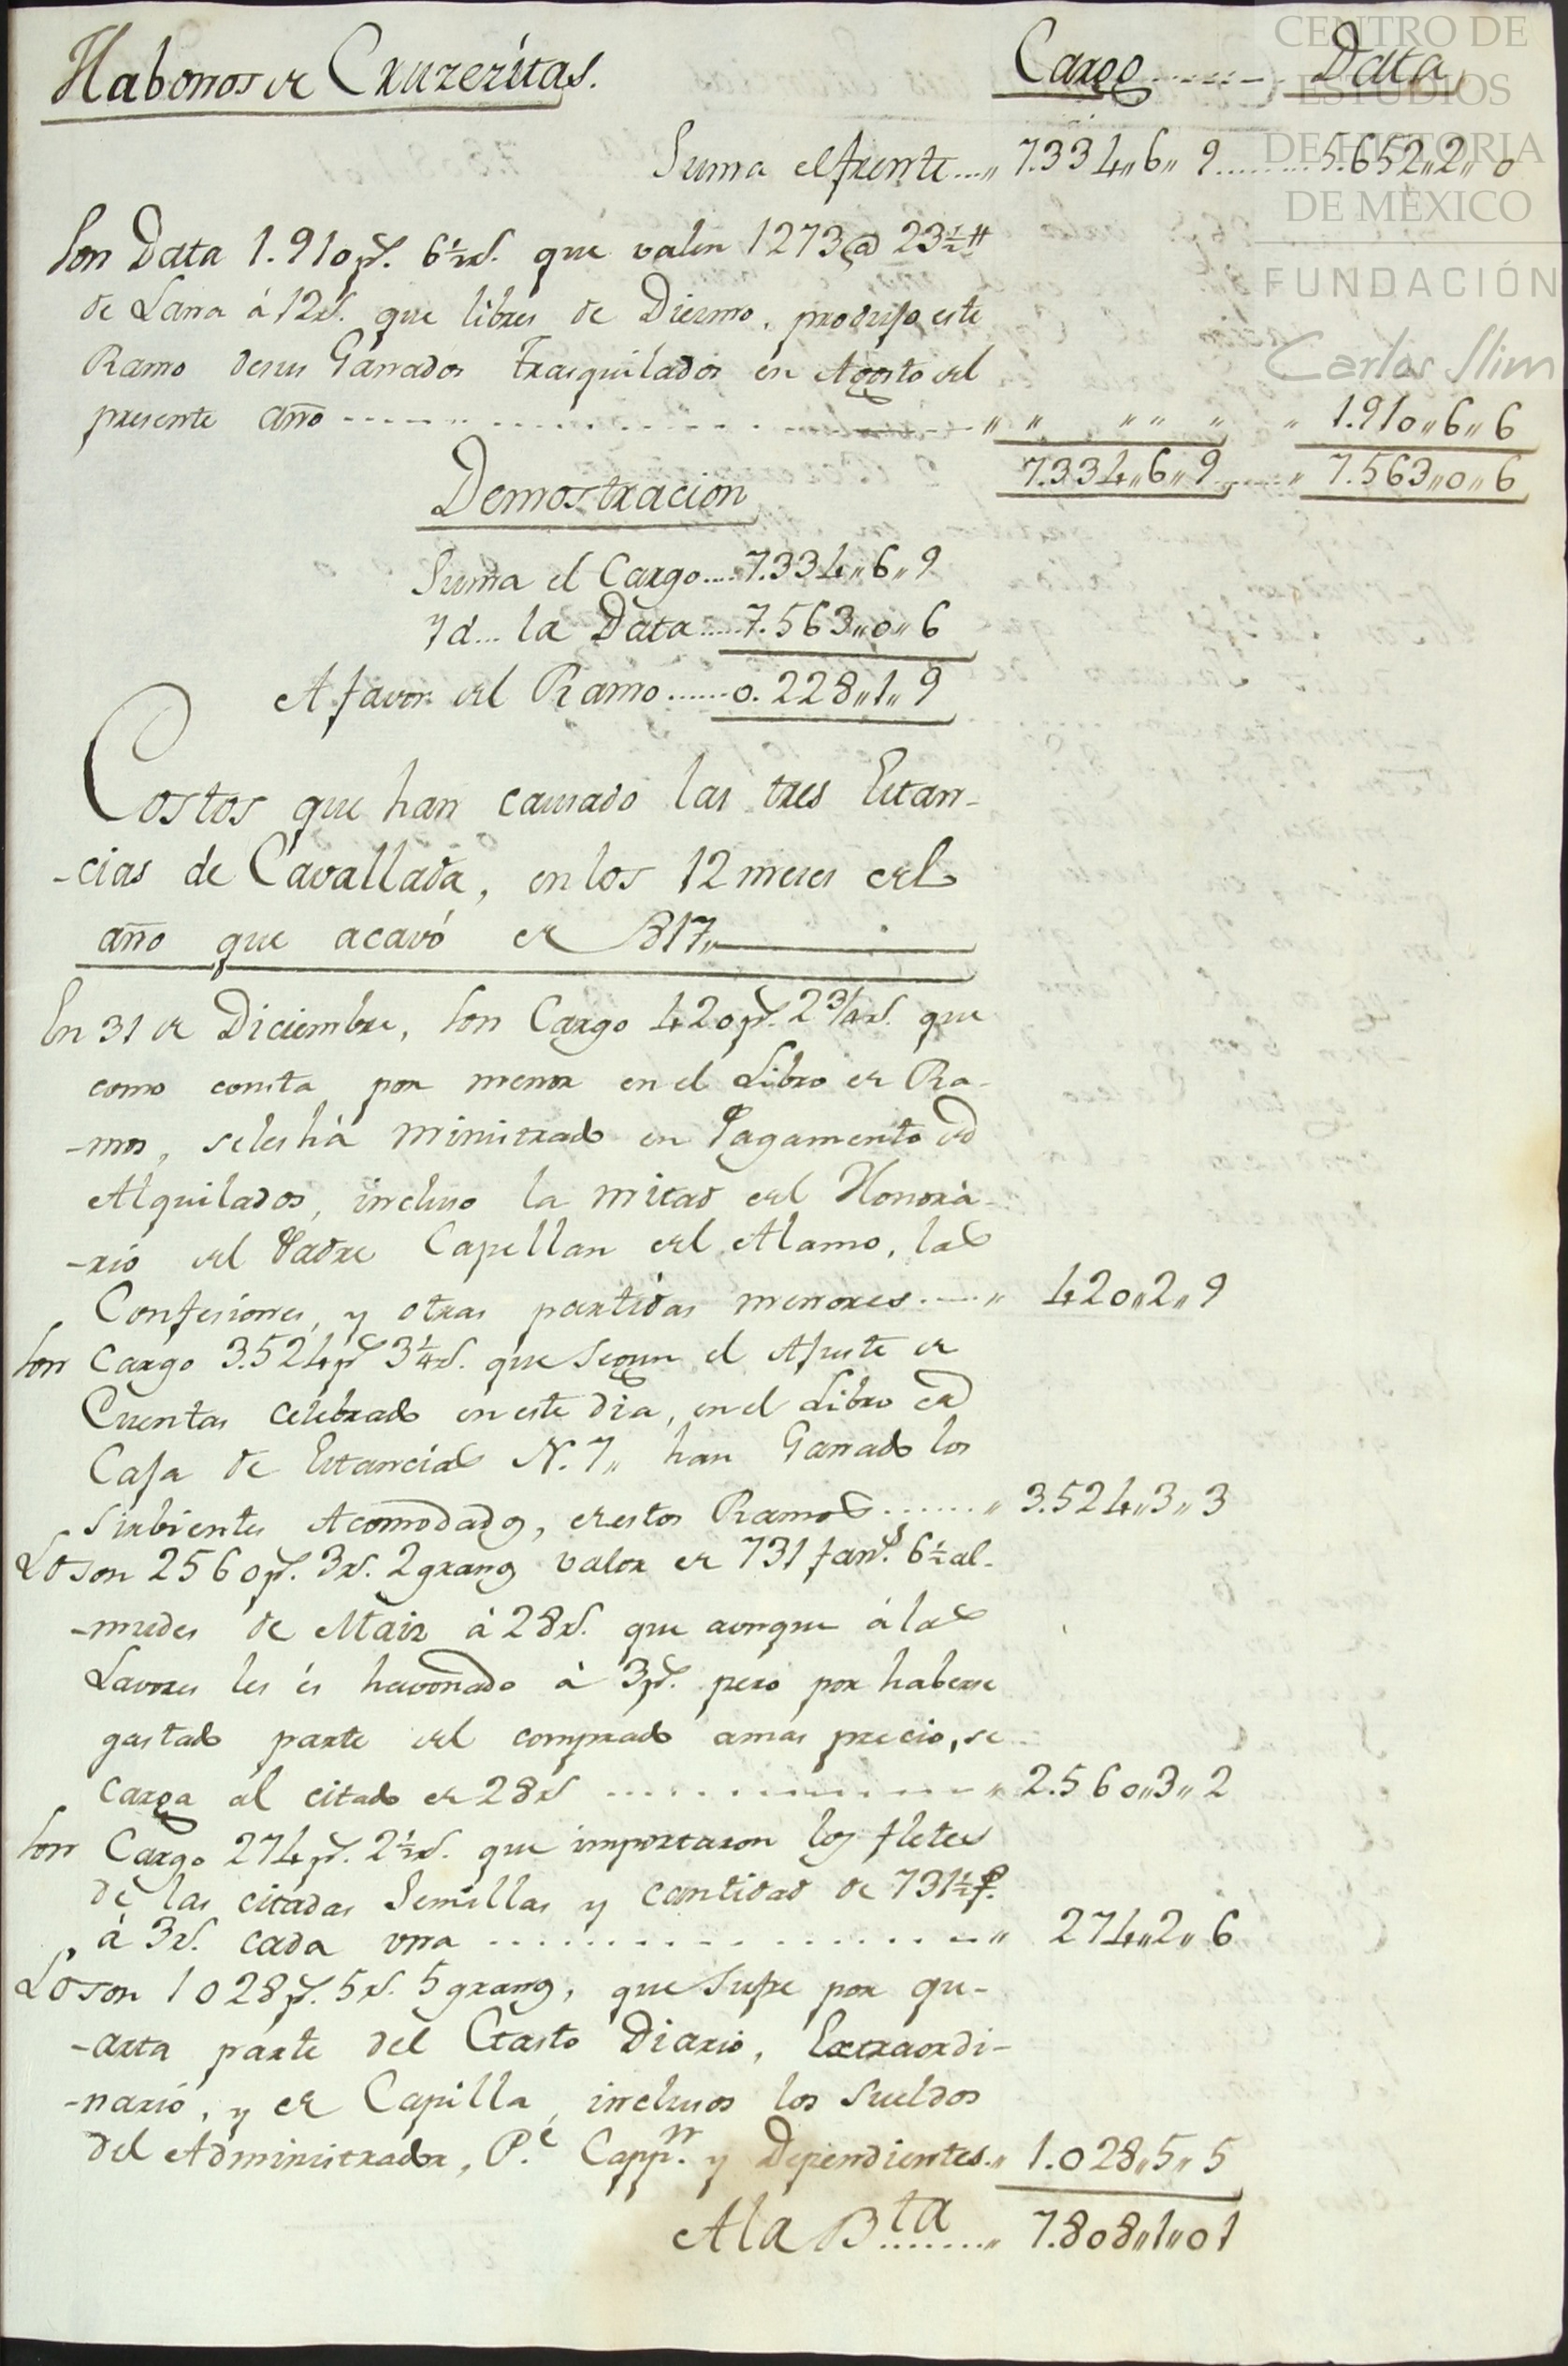 Habonos de Cruzeritas. Cargo ........ Data
Suma el frente...." 7.334"6"9.........5.652"2"0
Son Data 1.910 ps. 6½ rs. que valen 1273 @ 23½ tt
de Lana á 12 rs. que libres de Diezmo, produjo este
Ramo desus Ganados trasquilados en Agosto del
presente año ................" " " " " " 1.910"6"6
7.334"6"9......" 7.563"0"6
Demostracion
Suma el Cargo....7.334"6"9
Yd... la Data.....7.563"0"6
A favor del Ramo......0.228"1"9
Costos que han causado las tres Estan-
-cias de Cavallada, en los 12 meses del
año que acavó de 817"
En 31 de Diciembre, Son Cargo 420 ps. 2¾ rs. que
como consta por menor en el Libro de Ra-
-mos, seles há ministrado en Pagamento de
Alquilados, incluso la mitad del Honorá-
-rio del Padre Capellan del Alamo, las
Confesiones, y otras partidas menores....." 420"2"9
Son Cargo 3.524 ps 3¼ rs. que segun el Ajuste de
Cuentas celebrado en este dia, en el Libro de
Caja de Estancias N. 7" han Ganado los
Sirbientes Acomodados, de estos Ramos......" 3.524"3"3
Lo son 2560 ps. 3 rs. 2 granos valor de 731 fans. 6½ al-
-mudes de Maiz á 28 rs. que aunque á las
Lavores les és havonado á 3 ps. pero por haberse
gastado parte del comprado amas precio, se
carga al citado de 28 rs ................" 2.560"3"2
Son Cargo 274 ps. 2½ rs. que importaron los fletes
de las citadas Semillas y cantidad de 731½ f.
á 3 rs. cada una ................" 274"2"6
Lo son 1028 ps. 5 rs. 5 granos, que Sufre por qu-
-arta parte del Gasto Diario, Extraordi-
-nario, y de Capilla, inclusos los Sueldos
del Administrador, P.e Capp.n y Dependientes.." 1.028"5"5
A la B.ta ......." 7.808"1"01
CENTRO DE
ESTUDIOS
DE HISTORIA
DE MÉXICO
FUNDACIÓN
Carlos Slim